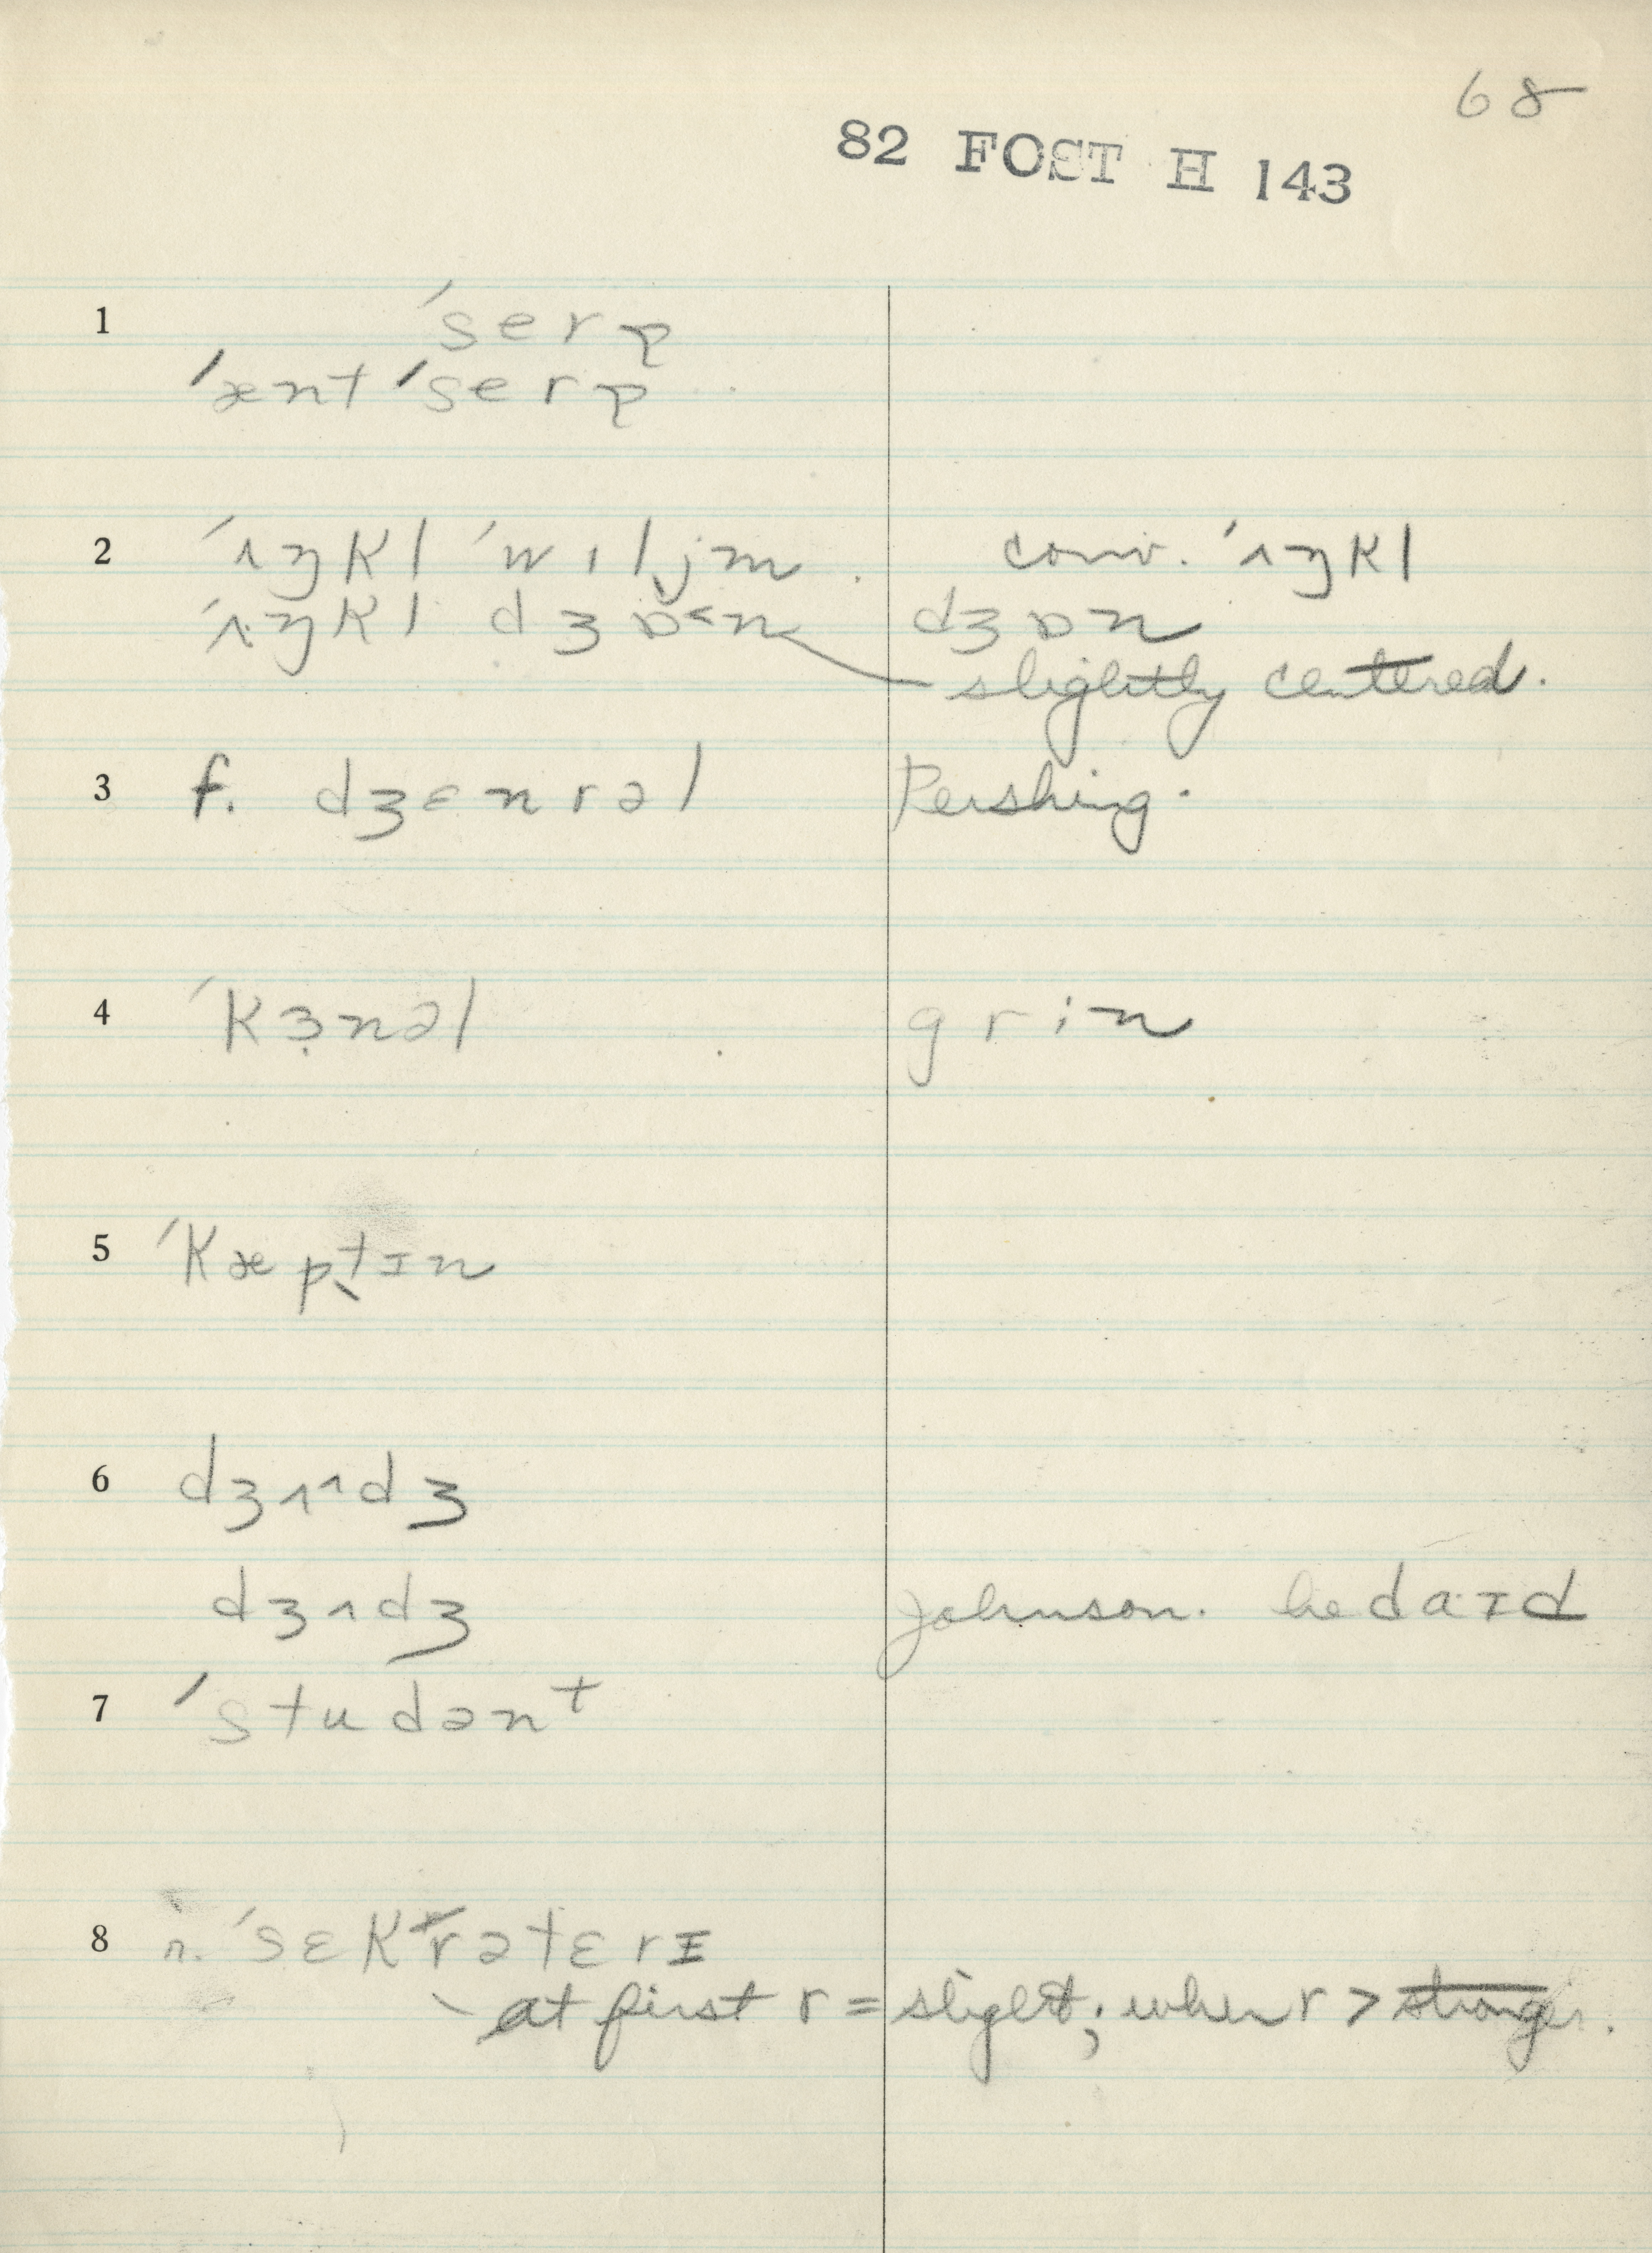 68
82 FOST H 143
1 ˈserə
ˈænt ˈserə
2 ˈʌŋkl ˈwɪljm . conv. ˈʌŋkl
ˈʌŋkl dʒɒ˂n dʒɒn
slightly centered.
3 f. dʒɛnrəl Pershing.
4 ˈkɜ̣nəl grin
5 ˈkæptɪn
6 dʒʌ^ʌdʒ
dʒʌdʒ Johnson. he daɪd
7 ˈstudənᵗ
8 r. ˈsɛkrətɛrɪ
at first r = slight; when r > stronger.